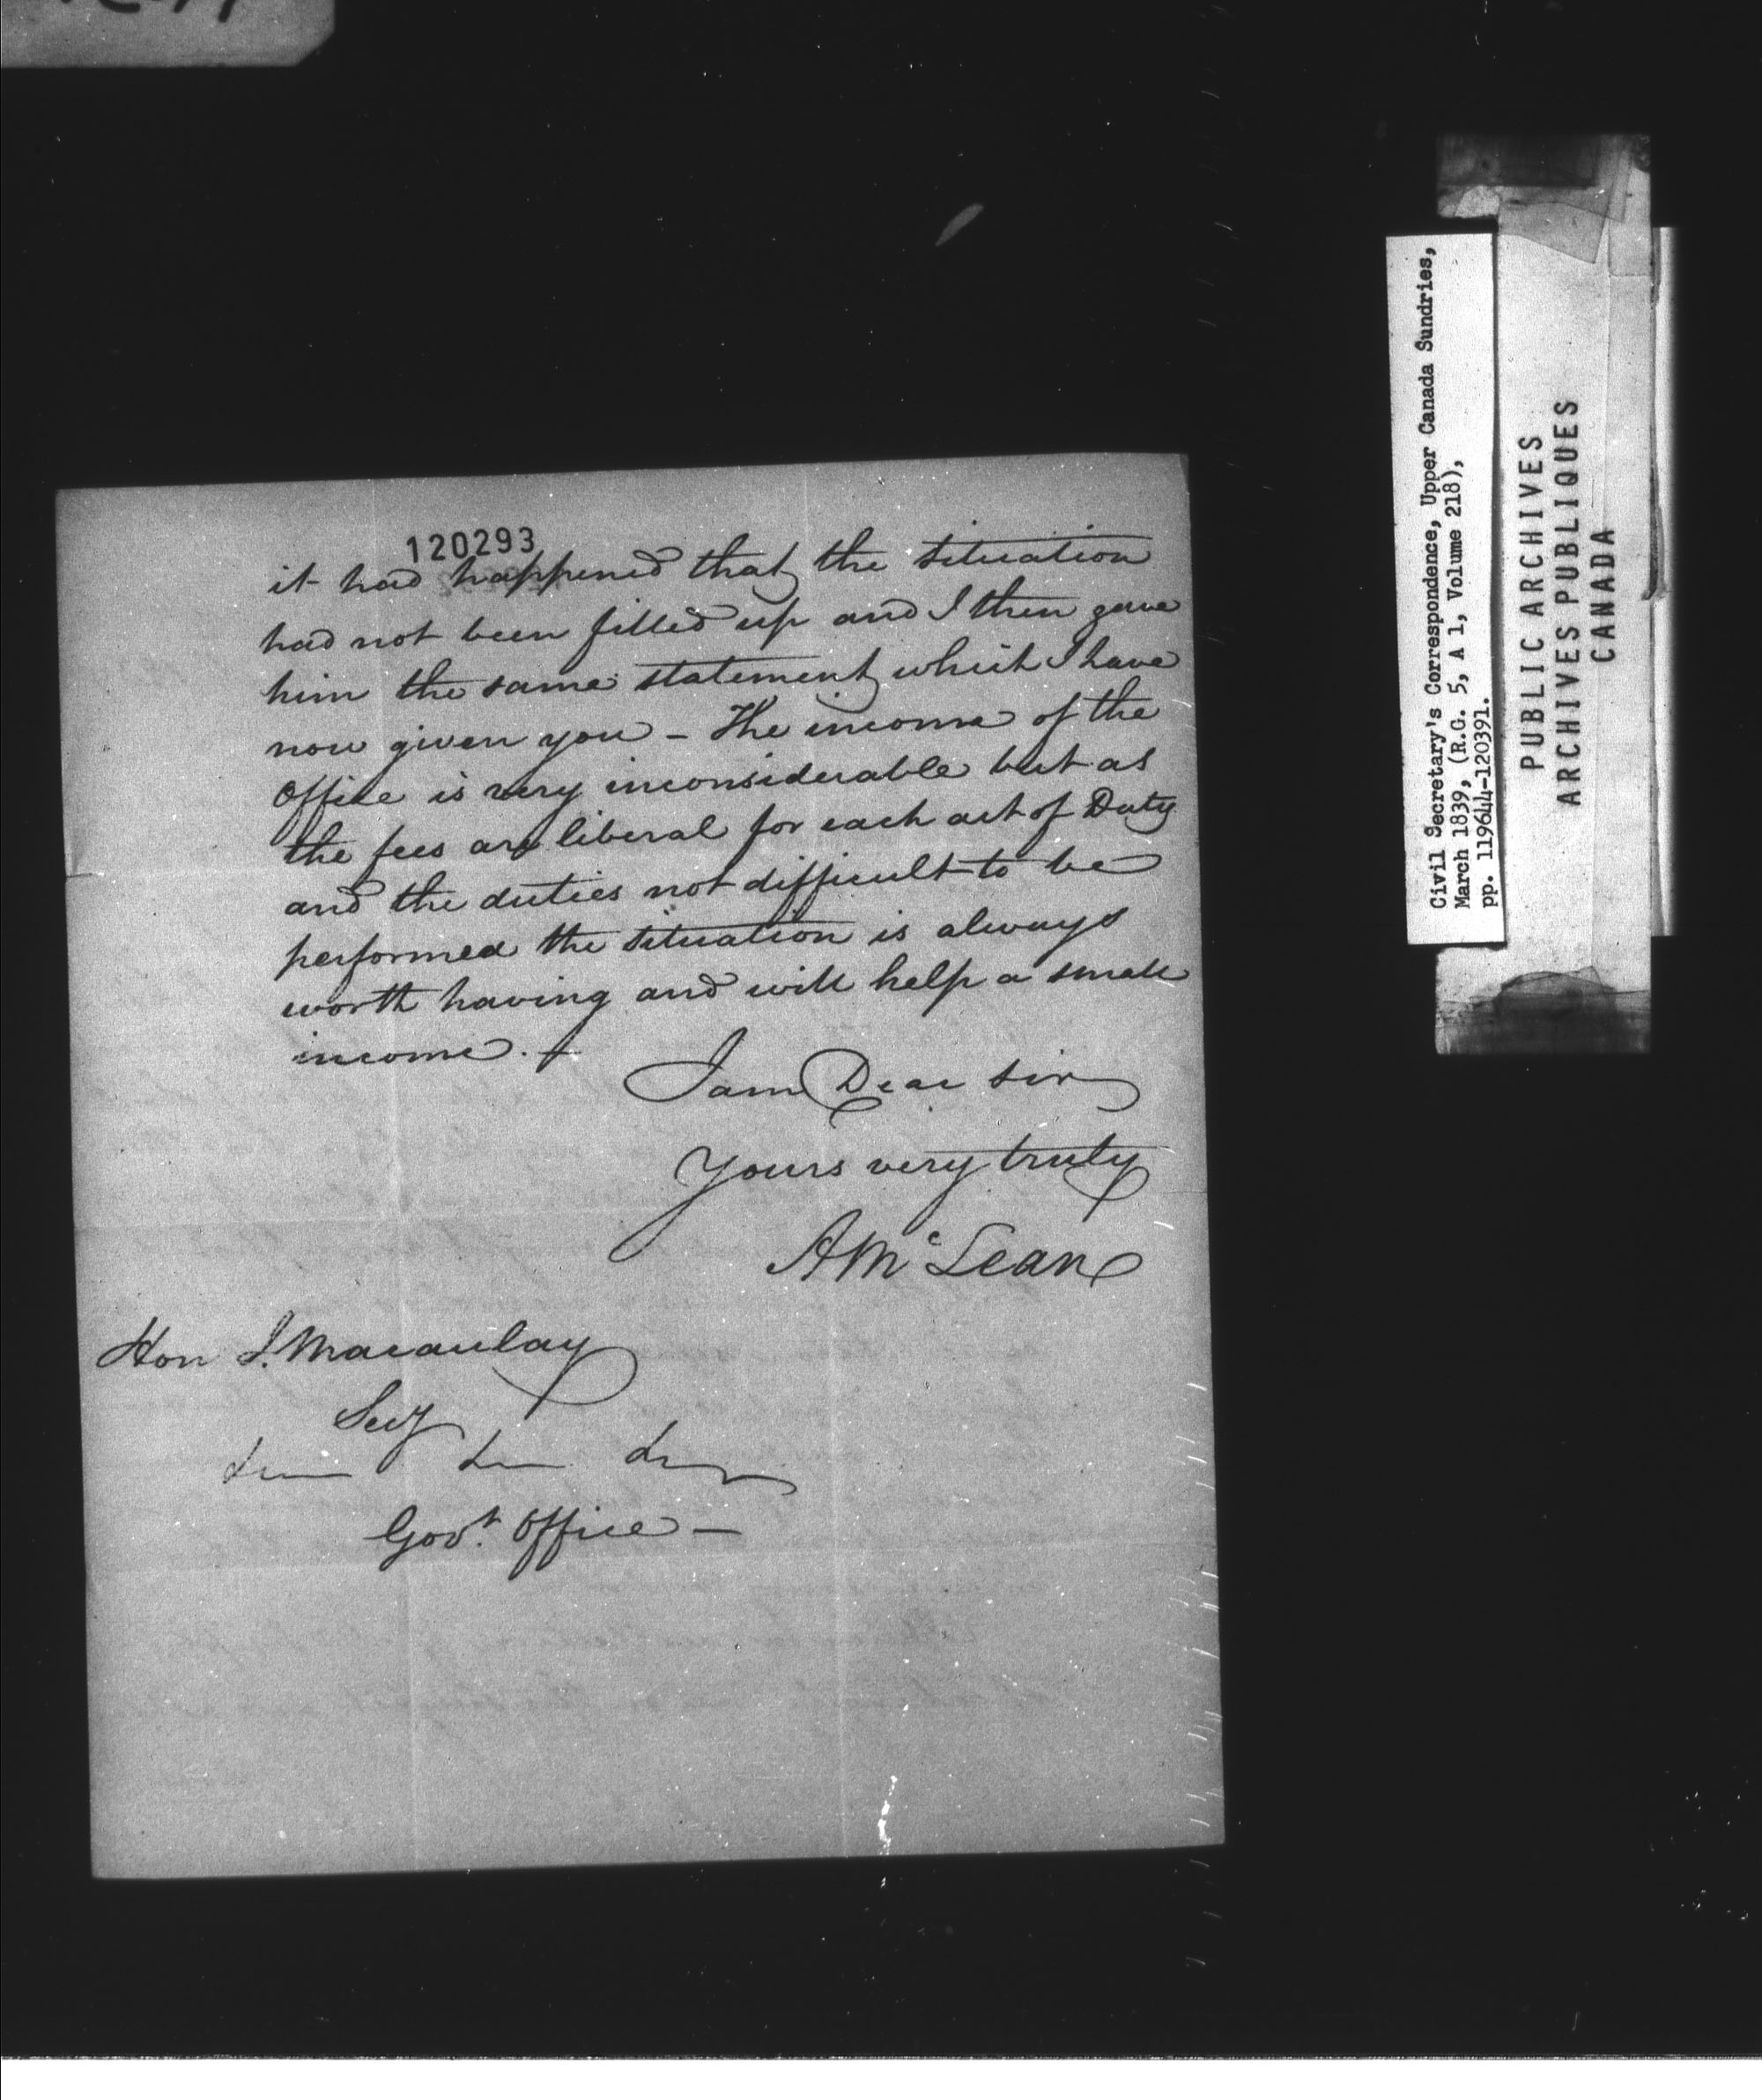 120293
it had happened that the situation
had not been filled up and I then gave
him the same statement which I have
now given you – The income of the
Office is very inconsiderable but as
the fees are liberal for each act of Duty
and the duties not difficult to be
performed the situation is always
worth having and will help a small
income. –
I am Dear Sir
Yours very truly
A McLean
Hon J. Macaulay
Secy
Govt. Office –
Civil Secretary's Correspondence, Upper Canada Sundries,
March 1839, (R.G. 5, A 1, Volume 218),
pp. 119644-120391.
PUBLIC ARCHIVES
ARCHIVES PUBLIQUES
CANADA